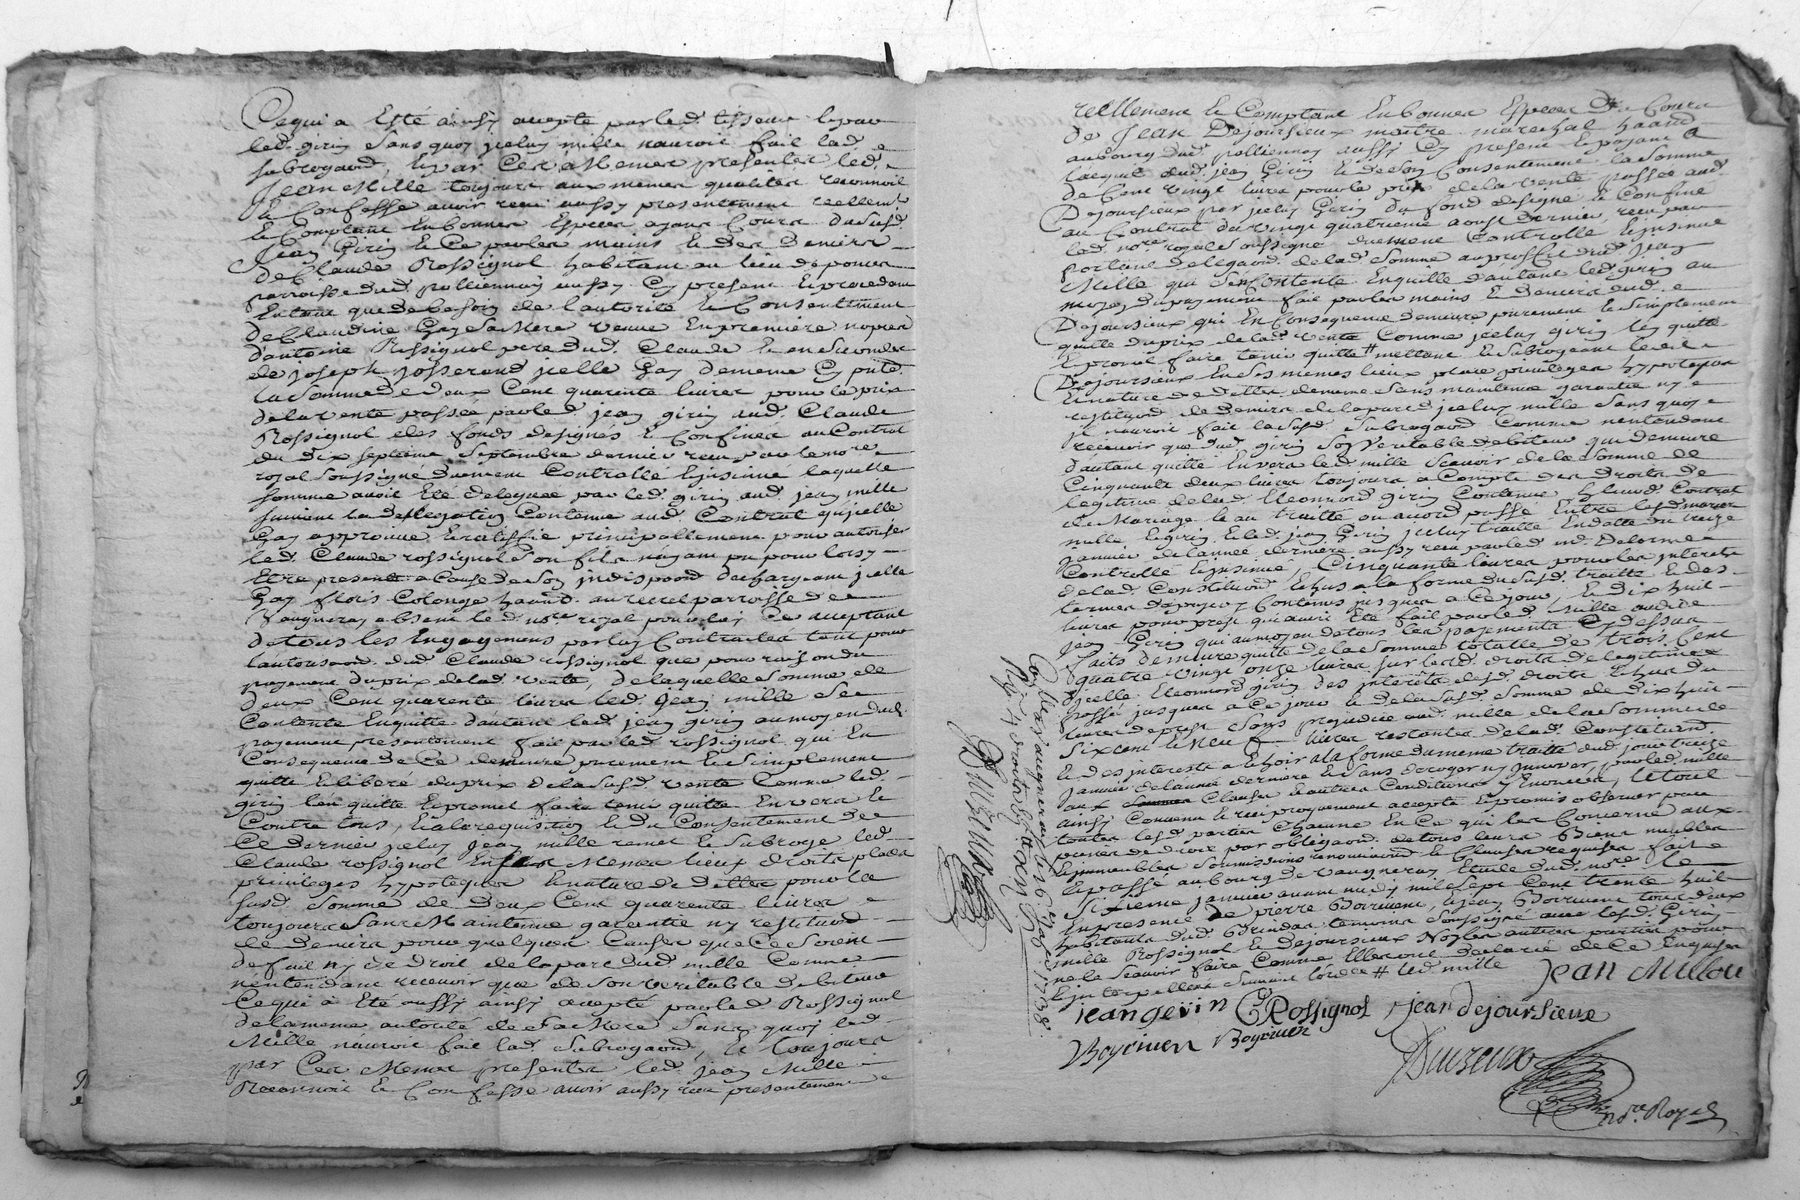 Ce qui a Esté ainsy accepté par led. tisseur le pau
led. girin sans quoy jceluy mille nauroit fait lad.
subrogaon, Et par Ces mesmes presentes led.
Jean Mille toujours aux memes qualites reconnoit
Et Confesse avoir receu aussy presentement reellemt
Et Comptant En bonnes Especes ayans Cours du susd.
Jean Girin Et Ce par les mains Et des deniers
de Claude Rossignol habitant au lieu de
parroisse dud. pollionnay aussy Cy present Et procedant
Entant que de besoin de l'autorité Et Consentement
de Claudine Gay sa Mere veuve En premiere nopces
d'antoine Rossignol pere dud. Claude Et en secondes
de joseph josserand jcelle Gay demême Cy pnte
la somme de deux Cent quarente livres pour le prix
de la vente passée par led. jean girin aud. Claude
Rossignol des fonds designés Et Confinés au Contrat
du dix septieme Septembre dernier receu par le nore
royal soussigné duement Controllé Et jnsinué laquelle
somme avoit Eté deleguée par led. girin aud. jean mille
suivant la dellegation Contenue aud. Contrat qu'jcelle
Gay approuve Et ratiffie principallement pour autoriser
led. Claude rossignol son fils nayant pu pour lors y
Etre presente a Cause de son jndispoon dechargeant jcelle
Gay Colonge habnt. au parroisse de
Vaugneray absent led. nore royal pour luy Ce acceptant
de tous les Engagemens par luy Contractés tant pour
l'autorisaon dud. Claude rossignol que pour raison du
payement du prix de lad. vente, de laquelle somme de
deux Cent quarente livres led. Jean mille se
Contente Enquitte d'autant led. jean girin au moyen dud.
payement presentement fait par led. rossignol qui En
Consequence de Ce demeure purement Et simplement
quitte Et liberé du prix de la susd. vente Comme led.
girin l'en quitte Et promet faire tenir quitte Envers Et
Contre tous, Et a la requisition Et du Consentement de
Ce dernier jceluy Jean mille remet Et subroge led.
Claude rossignol En ses Memes lieux droits places
privileges hypoteques Et nature de dettes pour la
susd. somme de deux Cent quarente livres
toujours sans Maintenue garantie ny restituon
de deniers pour quelques Causes que Ce soient
de fait ny de droit de la part dud. mille Comme
n'entendant recevoir que de son veritable debiteur
Ce qui a Eté aussy ainsy accepté par led. Rossignol
de la meme autorité de sa Mere sans quoy led.
Mille nauroit fait lad. subrogaon, Et toujours
par Ces Memes presentes led. jean Mille
Reconnoit Et Confesse avoir aussy receu presentement
reellement Et Comptant En bonnes Especes de Cours
de Jean Dejoursieux maître marechal habnt
au bourg dud. pollionnay aussy Cy present Et payant a
l'acquit dud. jean Girin Et de son Consentement la somme
de Cent vingt livres pour le prix de la vente passée aud.
Dejoursieux par jceluy Girin du fond designé Et Confiné
au Contrat du vingt quatrieme aoust dernier receu par
led. nore royal soussigné duement Controllé Et jnsinué
portant delegaon de lad. somme au proffit dud. jean
Mille qui s'en Contente Enquitte d'autant led. girin au
moyen du payement fait par les mains Et deniers dud.
Dejoursieux qui En Consequence demeure purement Et simplement
quitte du prix de lad. vente Comme jceluy girin l'en quitte
Et promet faire tenir quitte # mettant Et subrogeant led.
Dejoursieux En ses mêmes lieux place privileges hypoteques
Et nature de dettes demême sans maintenue garantie ny
restituon de deniers de la part d'jceluy mille sans quoy
jl nauroit fait la susd. subrogaon Comme n'entendant
recevoir que dud. girin son Veritable debiteur qui demeure
d'autant quitte Envers led. mille Scavoir de la somme de
Cinquante deux livres toujours a Compte des droits de
legitime de lad. Eleonnord girin Contenus Contrat
de Mariage Et au traitté ou accord passé Entre lesd. mariez
mille Et girin Et led. jean Girin jceluy traitté En datte du treize
janvier de l'année derniere aussy receu par led. me Delorme
Controllé Et jnsinué, Cinquante livres pour les interets
de lad. Constituon Echus a la forme du susd. traitté Et des
termes d'iceluy Contenus jusques a Ce jour, Et dix huit
livres pour prest qui avoit Eté fait par led. Mille audit
jean Girin qui au moyen de tous les payements Cy dessus
faits demeure quitte de la somme totalle de trois Cent
quatre vingt onze livres sur lesd. droits de legitime
d'jcelle Eleonnord girin des interêts desd. droits Echus du
passé jusques a Ce jour Et de la susd. somme de dix huit
livres de prest Sans prejudice aud. mille de la somme de
Six cent livres restantes de lad. Constituon
Et des interests a Echoir a la forme du meme traitté dud. jour treize
janvier de l'année derniere Et sans deroger ny jnnover, par led. mille
aux Clauses Et autres Conditions y Enoncées, Le tout
ainsy Convenu Et reciproquement accepté Et promis observer par
toutes lesd. parties Chacune En Ce qui les Concerne aux
peines de droit par obligaon de tous leurs Biens meubles
Et jmmeubles soumissions renonciaons Et Clauses requises fait
Et passé au bourg de vaugneray Etude dud. nore le
Sixieme janvier avant midy mil sept Cent trente huit
En presence de pierre Boyriven, Et jean Boyriven tous deux
habitants dud. Brindas temoins soussignés avec lesd. Girin
mille Rossignol Et Dejoursieux Non les autres parties pour
ne le scavoir faire Comme Elles ont declaré de Ce Enquises
Et jnterpellées suivant l'ordce # led. mille
Jean Millou
jean gerin CRossignol jean dejoursieux
Boyriven Boyriven
nore Royal
Collé a vaugneray le 16 janvier 1738